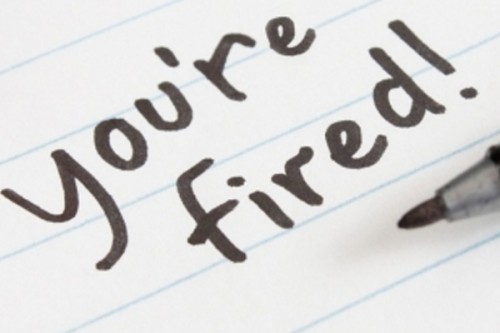 you're
fired!